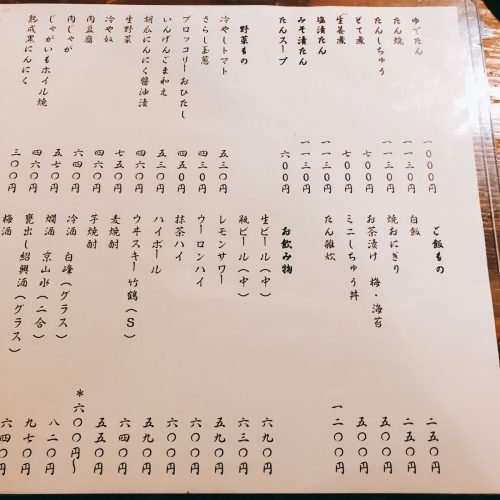 ゆでたん 一〇〇〇円
たん焼 一一三〇円
たんしちゅう 一一三〇円
とて煮 七〇〇円
生姜煮 七〇〇円
塩漬たん 一一三〇円
みそ漬たん 一一三〇円
たんスープ 六〇〇円
野菜もの
冷やしトマト 五三〇円
さらし玉葱 四三〇円
ブロッコリーおひたし 四五〇円
いんげんごま和え 五三〇円
胡瓜にんにく醬油漬 四五〇円
生野菜 七五〇円
冷や奴 四六〇円
肉豆腐 六六〇円
肉じゃが 五七〇円
じゃがいもホイル焼 四六〇円
熟成黒にんにく 三〇〇円
ご飯もの
白飯 二五〇円
焼おにぎり 二五〇円
お茶漬け 梅・海苔 五〇〇円
ミニしちゅう丼 五〇〇円
たん雑炊 一二〇〇円
お飲み物
生ビール(中) 六九〇円
瓶ビール(中) 六三〇円
レモンサワー 五九〇円
ウーロンハイ 六〇〇円
抹茶ハイ 六〇〇円
ハイボール 五九〇円
ウヰスキー竹鶴(S) 六四〇円
麦焼酎 五五〇円
芋焼酎 *六〇〇円〜
冷酒 白峰(グラス) 八二〇円
燗酒 京山水(二合) 九七〇円
甕出し紹興酒(グラス) 六四〇円
梅酒